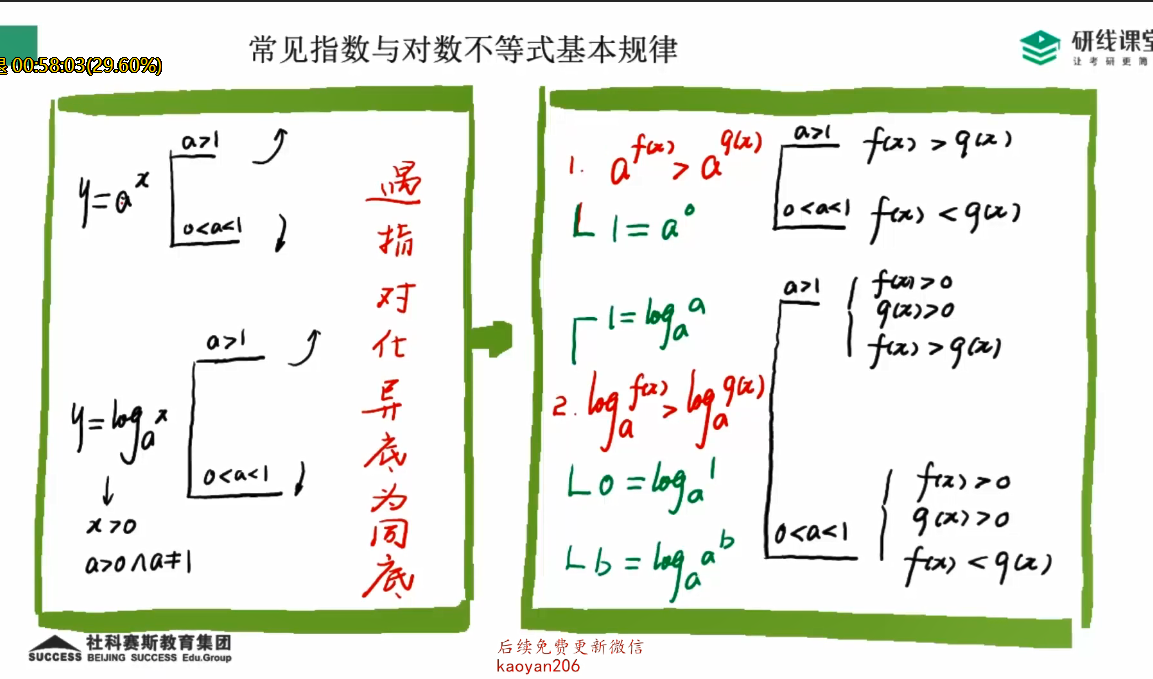 常见指数与对数不等式基本规律
研线课堂
让考研更简
00:58:03(29.60%)
y=a^x
a>1
0<a<1
y=log_a x
a>1
0<a<1
x>0
a>0∧a≠1
遇
指
对
化
异
底
为
同
底
1. a^f(x) > a^g(x)
1=a^0
a>1
f(x)>g(x)
0<a<1
f(x)<g(x)
1=log_a a
2. log_a f(x) > log_a g(x)
0=log_a 1
b=log_a a^b
a>1
f(x)>0
g(x)>0
f(x)>g(x)
0<a<1
f(x)>0
g(x)>0
f(x)<g(x)
社科赛斯教育集团
SUCCESS BEIJING SUCCESS Edu.Group
后续免费更新微信
kaoyan206